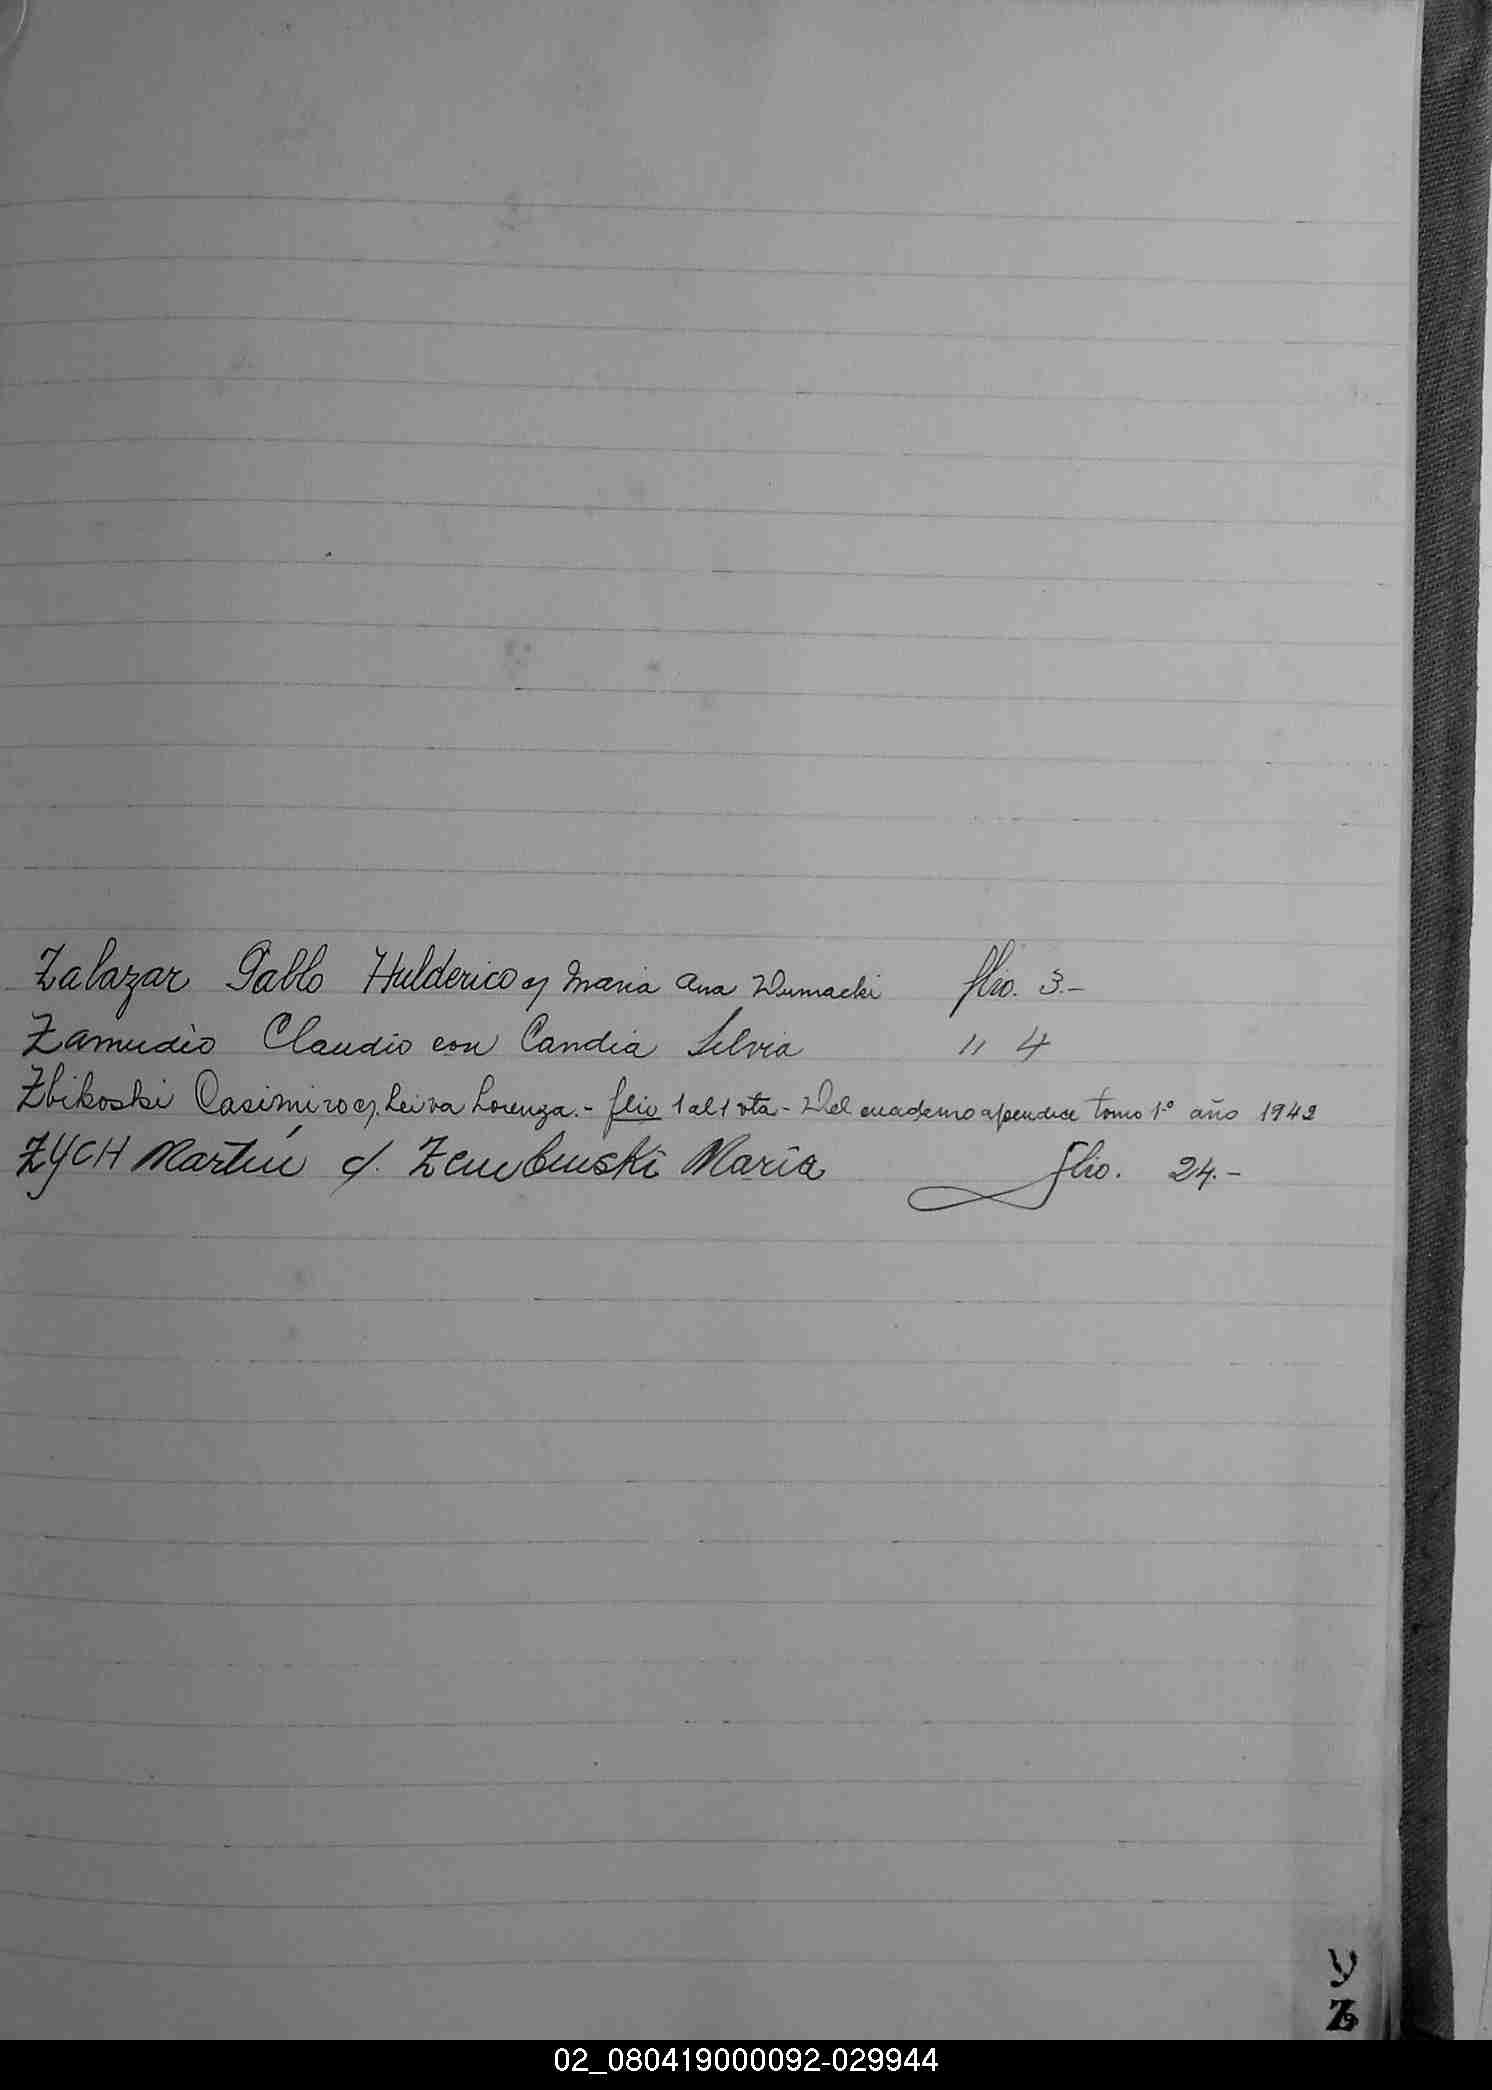 Zalazar Pablo Hulderico c/ Maria Ana Dumacki flio. 3.-
Zamudio Claudio con Candia Silvia " 4
Zbikoski Casimiro c/. Leiva Lorenza.- flio 1 al 1 vta - Del cuaderno apendice tomo 1º año 1942
ZYCH Martín c/. Zembruski María flio. 24.-
Y
Z
02_080419000092-029944